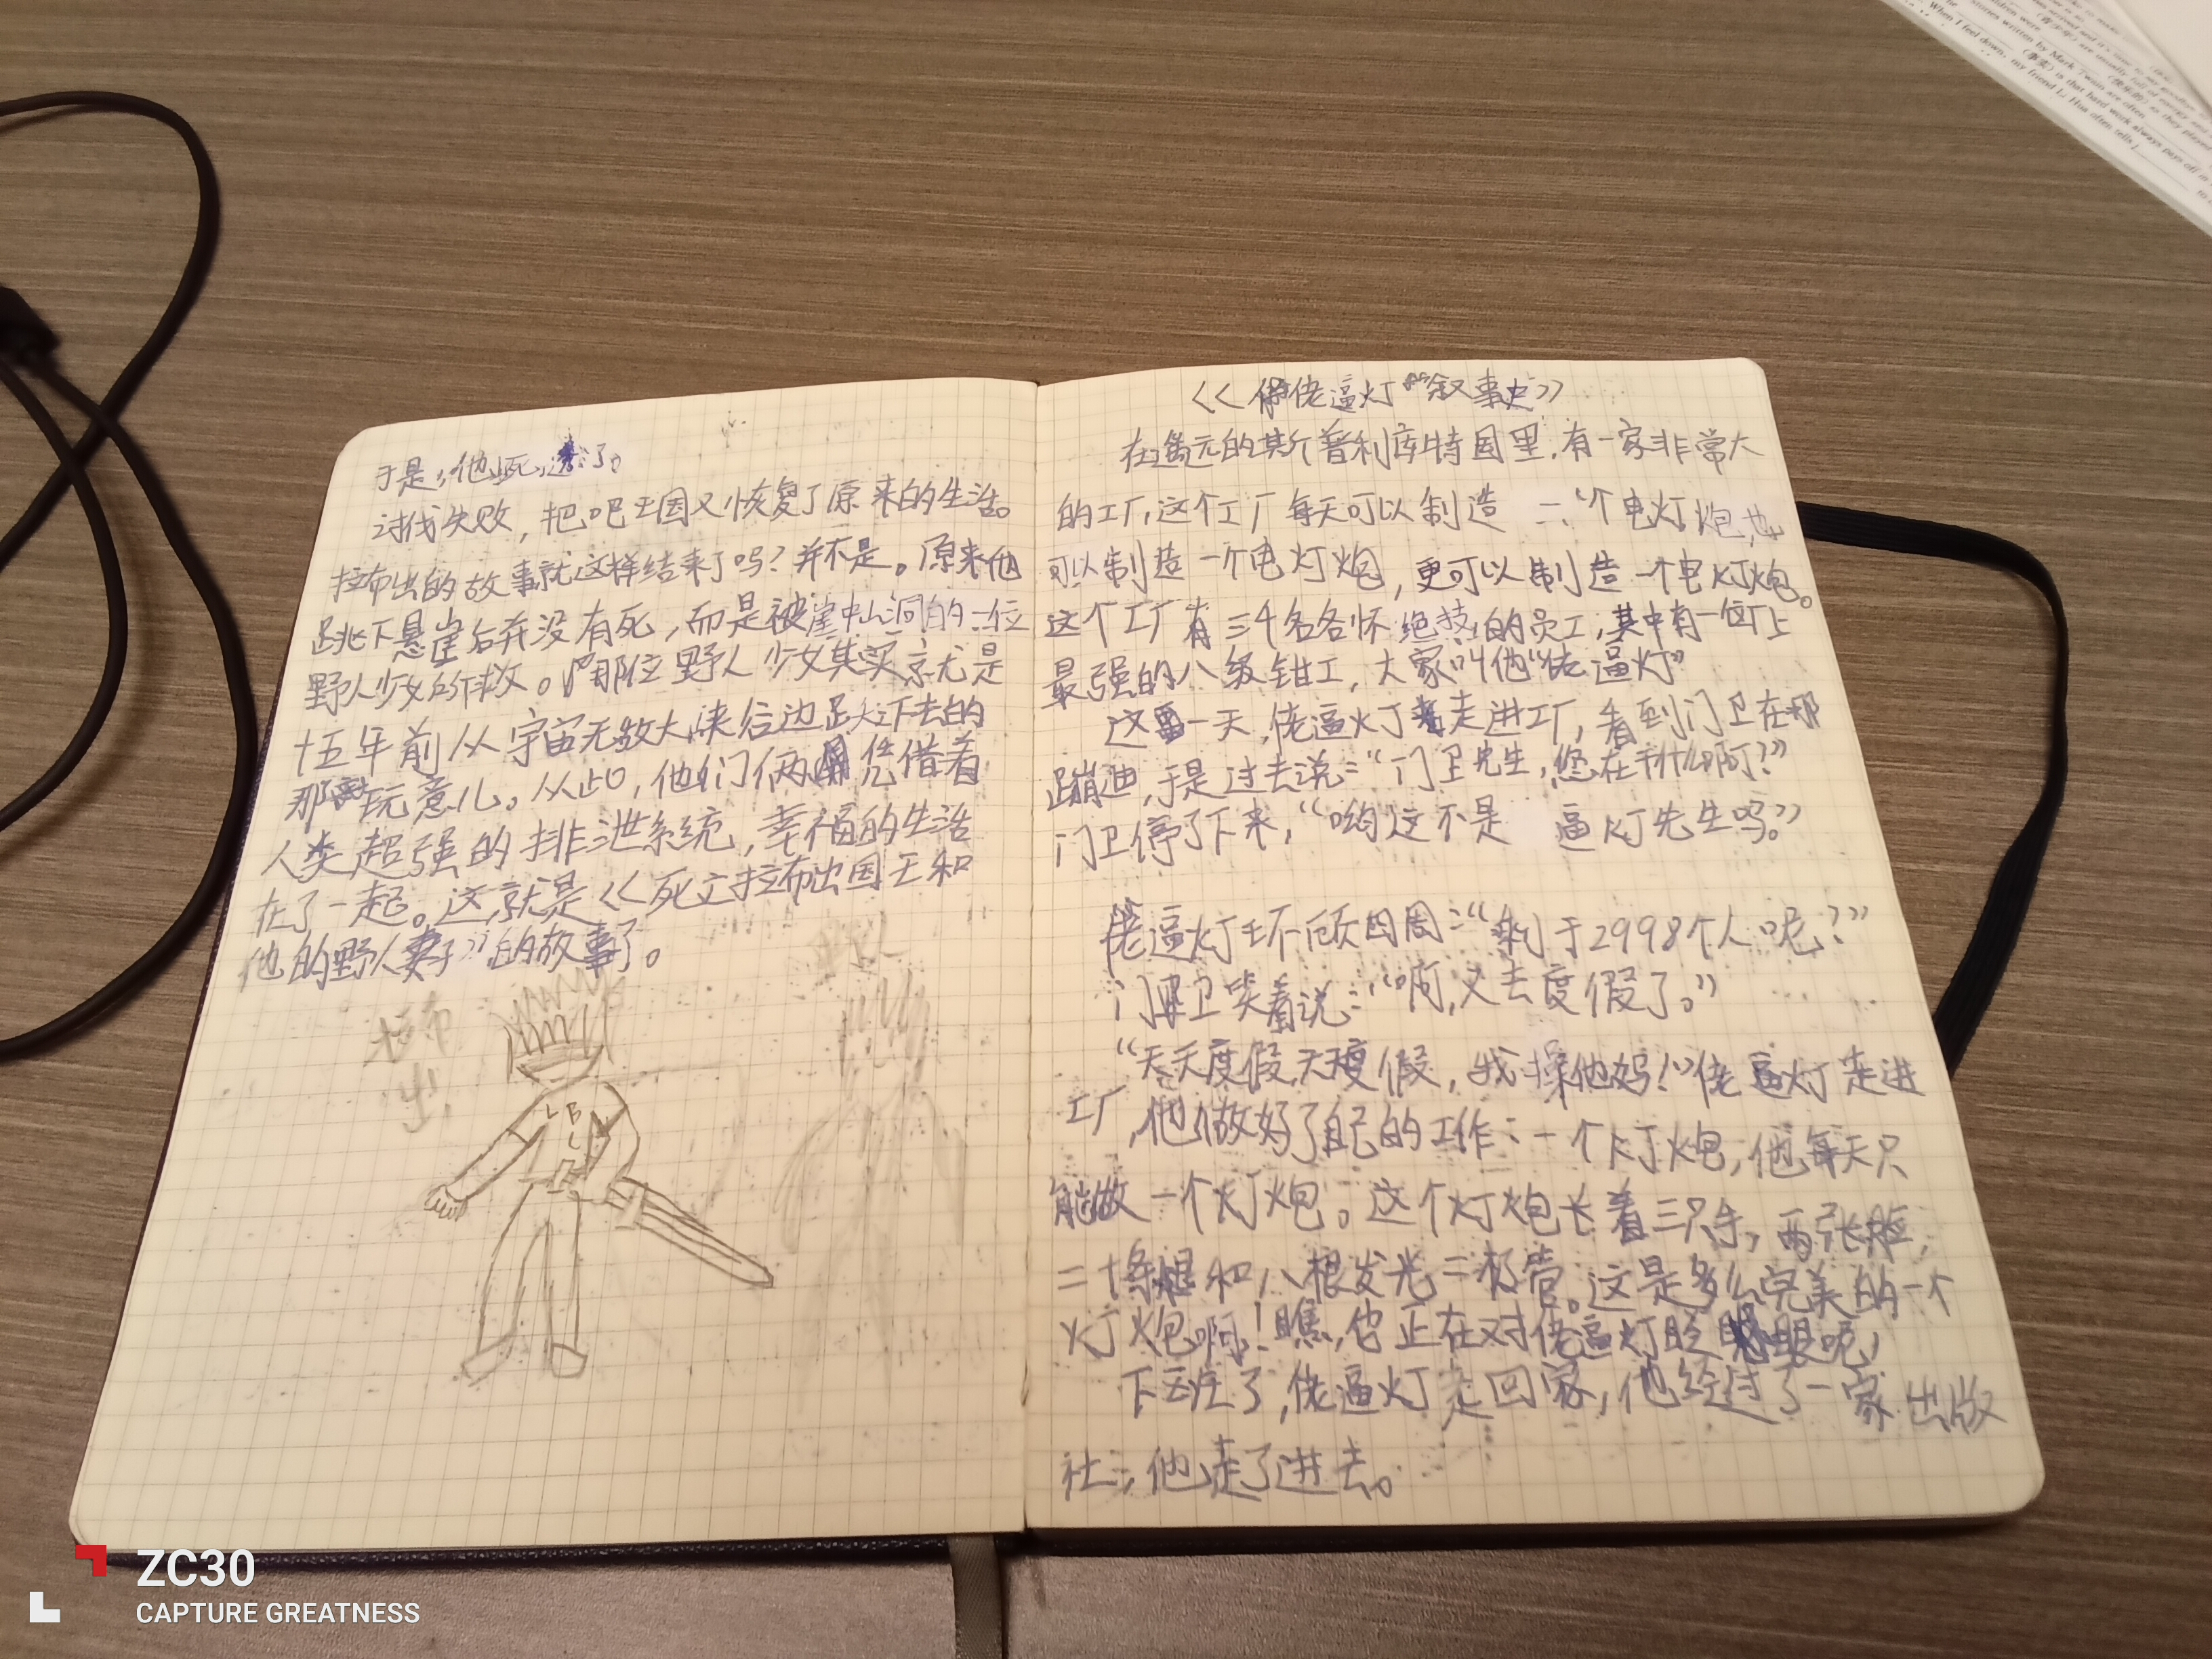 于是,他死了。
讨伐失败,把吧王国又恢复了原来的生活。
拉布出的故事就这样结束了吗?并不是。原来他
跳下悬崖后并没有死,而是被崖中山洞的一位
野人少女所救。那位野人少女其实就是
十五年前从宇宙无敌大峡谷边跳下去的
那玩意儿。从此,他们俩凭借着
人类超强的排泄系统,幸福的生活
在了一起。这就是《死亡拉布出国王和
他的野人妻子》的故事了。
拉布
出
L B
C
《佬逼灯叙事史》
在遥远的斯普利库特国里,有一家非常大
的工厂,这个工厂每天可以制造一个电灯炮,也
可以制造一个电灯炮,更可以制造一个电灯炮。
这个工厂有三千名各怀绝技的员工,其中有一位厂上
最强的八级钳工,大家叫他“佬逼灯”
这一天,佬逼灯走进工厂,看到门卫在那
蹦迪,于是过去说:“门卫先生,您在干什么啊?”
门卫停了下来,“哟这不是 逼灯先生吗。”
佬逼灯环顾四周:“剩于2998个人呢?”
门卫笑着说:“啊,又去度假了。”
“天天度假,天天度假,我操他妈!”佬逼灯走进
工厂,他做好了自己的工作:一个灯炮,他每天只
能做一个灯炮。这个灯炮长着三只手,两张脸,
二十条腿和八根发光二极管。这是多么完美的一个
灯炮啊!瞧,它正在对佬逼灯眨眼呢,
下班了,佬逼灯走回家,他经过了一家出版
社,他走了进去。
ZC30
CAPTURE GREATNESS